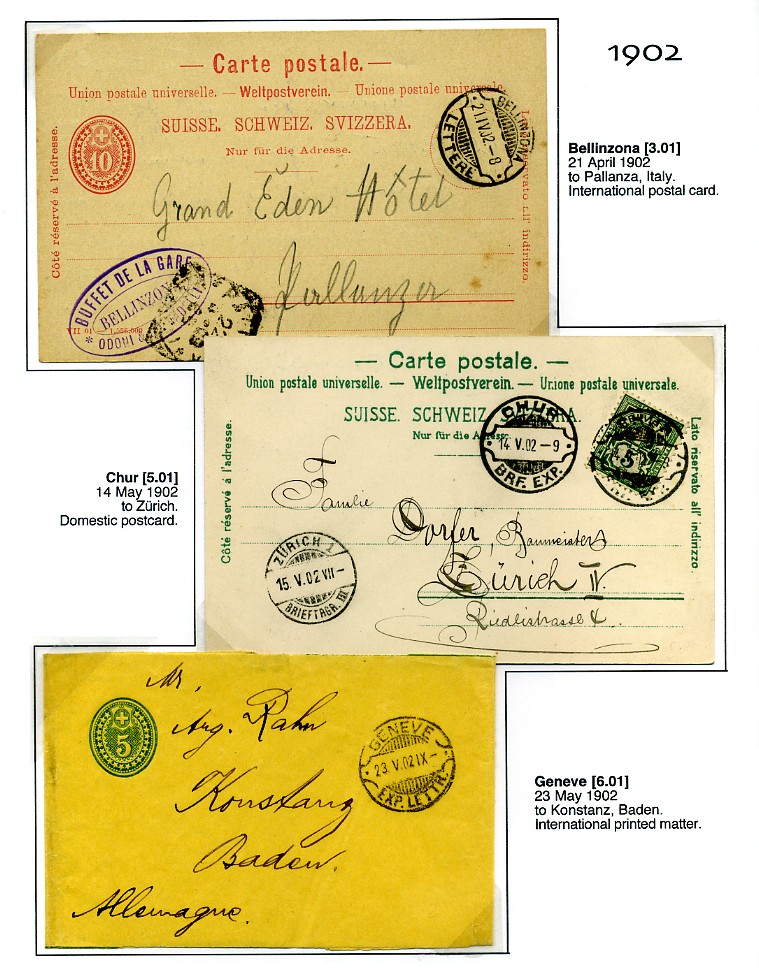 1902
— Carte postale. —
Union postale universelle. — Weltpostverein. — Unione postale universale.
SUISSE. SCHWEIZ. SVIZZERA.
Nur für die Adresse.
Côté réservé à l'adresse.
Lato riservato all' indirizzo.
10
BELLINZONA
21.IV.02-8
LETTERE
Grand Eden Hôtel
Pallanza
BUFFET DE LA GARE
BELLINZONA
* ODONI &
VII 01
Bellinzona [3.01]
21 April 1902
to Pallanza, Italy.
International postal card.
— Carte postale. —
Union postale universelle. — Weltpostverein. — Unione postale universale.
SUISSE. SCHWEIZ. SVIZZERA.
Nur für die Adresse.
Côté réservé à l'adresse.
Lato riservato all' indirizzo.
CHUR
14.V.02-9
BRF. EXP.
5
Familie
Dorfer, Baumeisters
Zürich IV
Riedlistrasse 4.
ZÜRICH 1
15.V.02 VII-
BRIEFTRGR. III
Chur [5.01]
14 May 1902
to Zürich.
Domestic postcard.
5
Mr.
Arg. Rahn
Konstanz
Baden.
Allemagne.
GENEVE
23.V.02 IX-
EXP. LETTR.
Geneve [6.01]
23 May 1902
to Konstanz, Baden.
International printed matter.